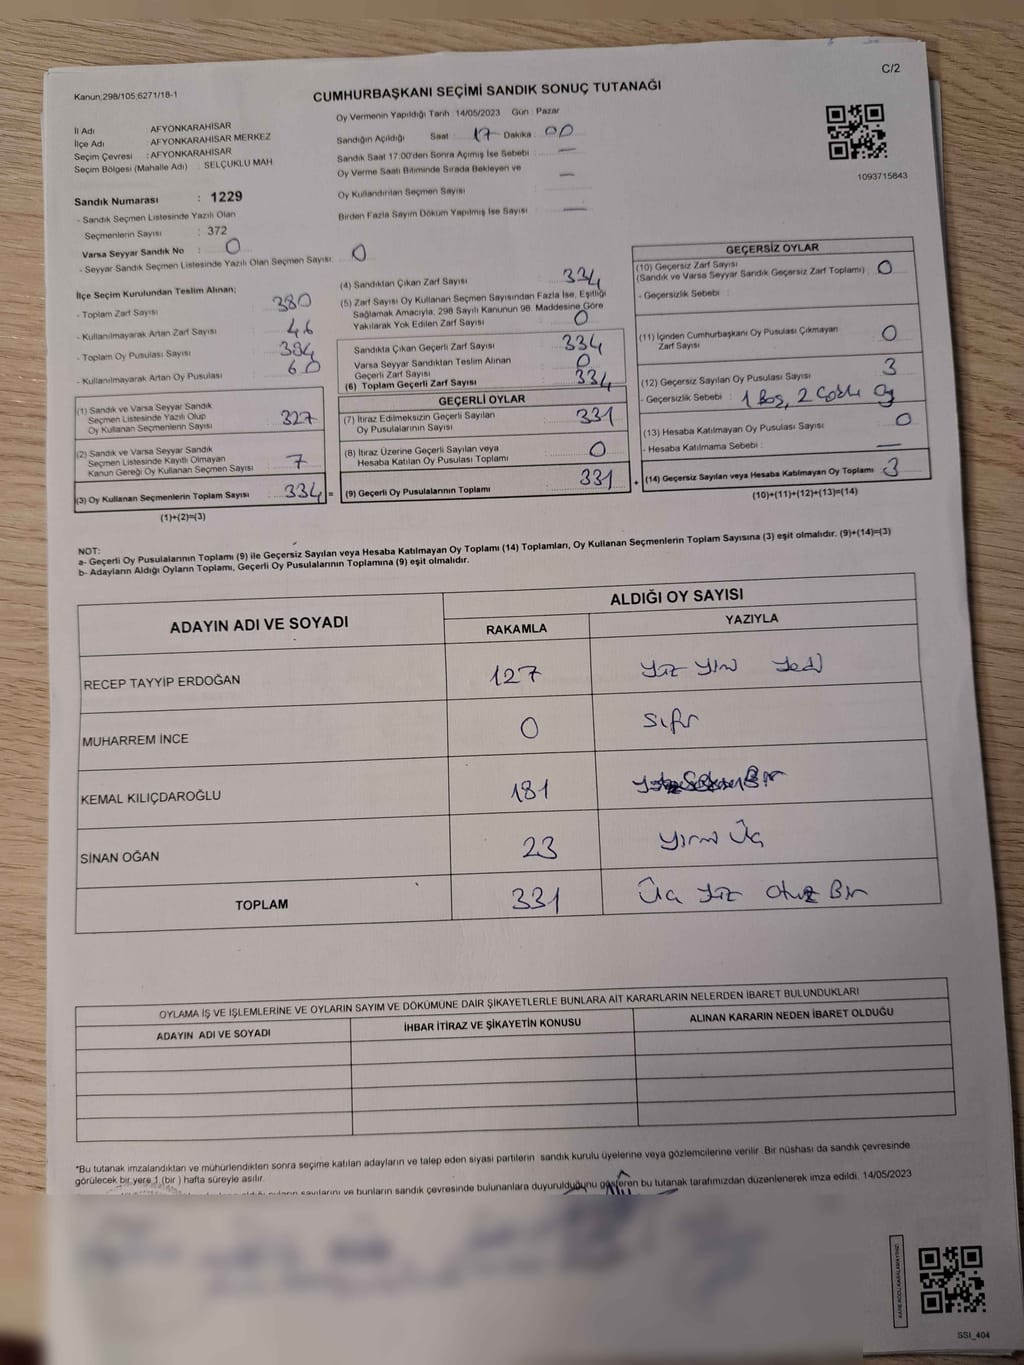 C/2
Kanun;298/105;6271/18-1
CUMHURBAŞKANI SEÇİMİ SANDIK SONUÇ TUTANAĞI
Oy Vermenin Yapıldığı Tarih 14/05/2023 Gün : Pazar
İl Adı AFYONKARAHİSAR
İlçe Adı : AFYONKARAHİSAR MERKEZ
Seçim Çevresi : AFYONKARAHİSAR
Seçim Bölgesi (Mahalle Adı) : SELÇUKLU MAH
Sandığın Açıldığı Saat 17 Dakika : 00
Sandık Saat 17:00'den Sonra Açımış İse Sebebi : —
Oy Verme Saati Bitiminde Sırada Bekleyen ve
Oy Kullandırılan Seçmen Sayısı : —
Birden Fazla Sayım Döküm Yapılmış İse Sayısı : —
1093715643
Sandık Numarası : 1229
- Sandık Seçmen Listesinde Yazılı Olan
Seçmenlerin Sayısı : 372
Varsa Seyyar Sandık No : 0
- Seyyar Sandık Seçmen Listesinde Yazılı Olan Seçmen Sayısı: 0
İlçe Seçim Kurulundan Teslim Alınan;
- Toplam Zarf Sayısı 380
- Kullanılmayarak Artan Zarf Sayısı 46
- Toplam Oy Pusulası Sayısı 394
- Kullanılmayarak Artan Oy Pusulası 60
(1) Sandık ve Varsa Seyyar Sandık
Seçmen Listesinde Yazılı Olup
Oy Kullanan Seçmenlerin Sayısı : 327
(2) Sandık ve Varsa Seyyar Sandık
Seçmen Listesinde Kayıtlı Olmayan
Kanun Gereği Oy Kullanan Seçmen Sayısı : 7
(3) Oy Kullanan Seçmenlerin Toplam Sayısı : 334 =
(1)+(2)=(3)
(4) Sandıktan Çıkan Zarf Sayısı 334
(5) Zarf Sayısı Oy Kullanan Seçmen Sayısından Fazla İse, Eşitliği
Sağlamak Amacıyla, 298 Sayılı Kanunun 98. Maddesine Göre
Yakılarak Yok Edilen Zarf Sayısı : 0
Sandıkta Çıkan Geçerli Zarf Sayısı 334
Varsa Seyyar Sandıktan Teslim Alınan
Geçerli Zarf Sayısı : 0
(6) Toplam Geçerli Zarf Sayısı 334
GEÇERLİ OYLAR
(7) İtiraz Edilmeksizin Geçerli Sayılan
Oy Pusulalarının Sayısı : 331
(8) İtiraz Üzerine Geçerli Sayılan veya
Hesaba Katılan Oy Pusulası Toplamı 0
(9) Geçerli Oy Pusulalarının Toplamı 331
GEÇERSİZ OYLAR
(10) Geçersiz Zarf Sayısı
(Sandık ve Varsa Seyyar Sandık Geçersiz Zarf Toplamı) : 0
- Geçersizlik Sebebi :
(11) İçinden Cumhurbaşkanı Oy Pusulası Çıkmayan
Zarf Sayısı : 0
(12) Geçersiz Sayılan Oy Pusulası Sayısı : 3
- Geçersizlik Sebebi : 1 Boş, 2 Çoklu Oy
(13) Hesaba Katılmayan Oy Pusulası Sayısı : 0
- Hesaba Katılmama Sebebi : —
(14) Geçersiz Sayılan veya Hesaba Katılmayan Oy Toplamı : 3
(10)+(11)+(12)+(13)=(14)
NOT:
a- Geçerli Oy Pusulalarının Toplamı (9) ile Geçersiz Sayılan veya Hesaba Katılmayan Oy Toplamı (14) Toplamları, Oy Kullanan Seçmenlerin Toplam Sayısına (3) eşit olmalıdır. (9)+(14)=(3)
b- Adayların Aldığı Oyların Toplamı, Geçerli Oy Pusulalarının Toplamına (9) eşit olmalıdır.
ADAYIN ADI VE SOYADI
ALDIĞI OY SAYISI
RAKAMLA YAZIYLA
RECEP TAYYİP ERDOĞAN 127 Yüz Yirmi Yedi
MUHARREM İNCE 0 Sıfır
KEMAL KILIÇDAROĞLU 181 Yüz Seksen Bir
SİNAN OĞAN 23 Yirmi Üç
TOPLAM 331 Üç Yüz Otuz Bir
OYLAMA İŞ VE İŞLEMLERİNE VE OYLARIN SAYIM VE DÖKÜMÜNE DAİR ŞİKAYETLERLE BUNLARA AİT KARARLARIN NELERDEN İBARET BULUNDUKLARI
ADAYIN ADI VE SOYADI İHBAR İTİRAZ VE ŞİKAYETİN KONUSU ALINAN KARARIN NEDEN İBARET OLDUĞU
*Bu tutanak imzalandıktan ve mühürlendikten sonra seçime katılan adayların ve talep eden siyasi partilerin sandık kurulu üyelerine veya gözlemcilerine verilir. Bir nüshası da sandık çevresinde
görülecek bir yere 1 (bir) hafta süreyle asılır.
sayılarını ve bunların sandık çevresinde bulunanlara duyurulduğunu gösteren bu tutanak tarafımızdan düzenlenerek imza edildi. 14/05/2023
SSİ_404